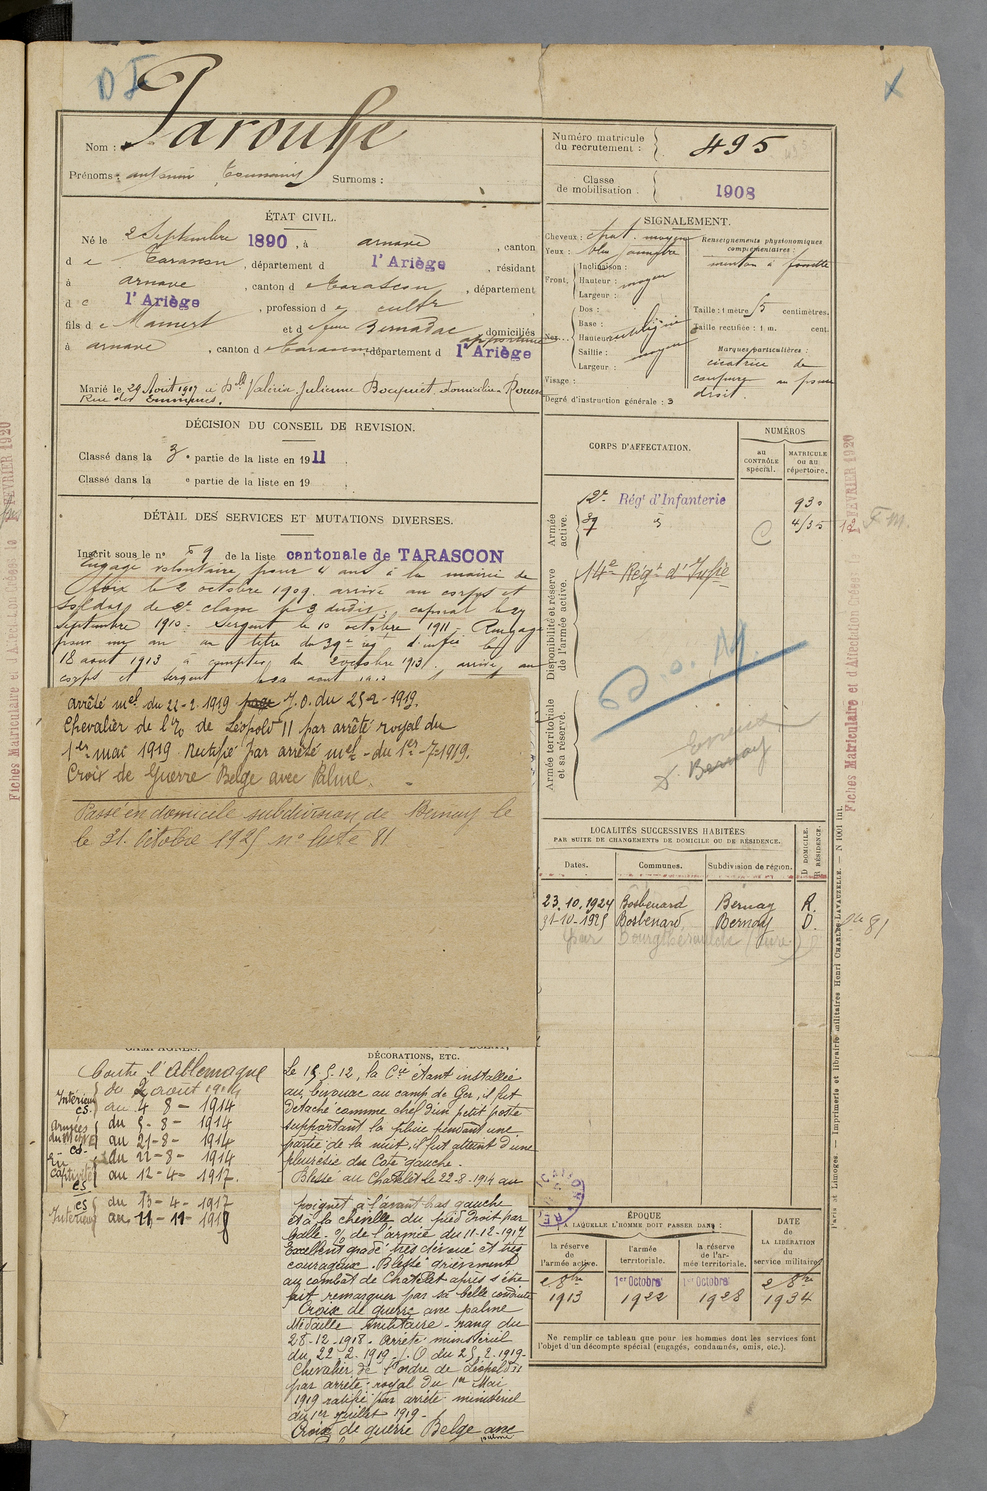 D I
Nom : Paroube
Prénoms : antonin Toussaint Surnoms :
Numéro matricule
du recrutement : 495
Classe
de mobilisation : 1908
ÉTAT CIVIL.
Né le 2 Septembre 1890, à arnave, canton
d e Tarascon, département d l'Ariège, résidant
à arnave, canton d e Tarascon, département
d e l'Ariège, profession d e cultr
fils d e Mamert et d e Bernadac, domiciliés
à arnave, canton d e Tarascon département d l'Ariège
Marié le 29 Août 1917 à Dlle Valérie Julienne Bocquet, domiciliée à Rouen
Rue des
SIGNALEMENT.
Cheveux : chat. moyen
Yeux : bleu
Front,
Inclinaison :
Hauteur : moyen
Largeur :
Nez...
Dos :
Base :
Hauteur rectiligne
Saillie : moyen
Largeur :
Visage :
Degré d'instruction générale : 3
Renseignements physionomiques
complémentaires :
menton à fossette
Taille : 1 mètre 75 centimètres.
Taille rectifiée : 1 m. cent.
Marques particulières :
cicatrice de
coupure au pouce
droit.
DÉCISION DU CONSEIL DE REVISION.
Classé dans la 3e partie de la liste en 1911
Classé dans la e partie de la liste en 19
DÉTAIL DES SERVICES ET MUTATIONS DIVERSES.
Inscrit sous le n° 59 de la liste cantonale de TARASCON
Engagé volontaire pour 4 ans à la mairie de
Foix le 2 octobre 1909. arrivé au corps et
soldat de 2e classe le 3 dudit; caporal le 27
septembre 1910 - Sergent le 10 octobre 1911 - Rengagé
pour un an au titre du 39e rég d'infie le
18 aout 1913 à compter du 2 octobre 1913. arrivé au
corps et sergent
arrêté mel du 22-2-1919 J.O. du 25-2-1919.
Chevalier de l'o de Léopold II par arrêté royal du
1er mai 1919. Rectifié par arrêté mel du 1er-7-1919.
Croix de Guerre Belge avec Palme.
Passé en domicile subdivision de Bernay le
le 31 Octobre 1925 n° liste 81
CORPS D'AFFECTATION.
NUMÉROS
au
CONTRÔLE
spécial.
MATRICULE
ou au
répertoire.
Armée
active.
12e Régt d'Infanterie 930
39 4135
C
Disponibilité et réserve
de l'armée active.
14e Régt d'Infie
Armée territoriale
et sa réserve.
Evreux
D. Bernay
LOCALITÉS SUCCESSIVES HABITÉES
PAR SUITE DE CHANGEMENTS DE DOMICILE OU DE RÉSIDENCE.
Dates. Communes. Subdivision de région.
D DOMICILE.
R RÉSIDENCE.
23.10.1924 Bosbenard Bernay R.
31-10-1925 Bosbenard Bernay D.
par Bourgtheroulde (Eure)
81
CAMPAGNES.
Contre l'Allemagne
Intérieur
cs.
du 2 aout 1914
au 4-8-1914
armées
du N et NE
cs.
du 5-8-1914
au 21-8-1914
En
captivité
cs
du 22-8-1914
au 12-4-1917.
cs
Intérieur
du 13-4-1917
au 11-11-1918
DÉCORATIONS, ETC.
Le 15.5.12, la Cie étant installée
au bivouac au camp de Ger, il fut
détaché comme chef d'un petit poste
supportant la pluie pendant une
partie de la nuit, il fut atteint d'une
pleurésie du Côté gauche.
Blessé au Chatelet le 22-8-1914 au
poignet à l'avant bras gauche
et à la cheville du pied droit par
balle. O/ de l'armée du 11-12-1917
Excellent gradé très dévoué et très
courageux. Blessé grièvement
au combat de Chatelet après s'être
fait remarquer par sa belle conduite
Croix de guerre avec palme
Médaille militaire - rang du
28-12-1918. Arrêté ministériel
du 22-2-1919 J.O du 25.2.1919-
Chevalier de l'ordre de Léopold II
par arrêté royal du 1er Mai
1919 ratifié par arrêté ministériel
du 1er juillet 1919 -
Croix de guerre Belge avec
palme
ÉPOQUE
À LAQUELLE L'HOMME DOIT PASSER DANS :
DATE
DE
LA LIBÉRATION
du
service militaire.
la réserve
de
l'armée active.
l'armée
territoriale.
la réserve
de l'ar-
mée territoriale.
2 8bre 1er Octobre 1er Octobre 2 8bre
1913 1922 1928 1934
Ne remplir ce tableau que pour les hommes dont les services font
l'objet d'un décompte spécial (engagés, condamnés, omis, etc.).
Paris et Limoges. — Imprimerie et librairie militaires Henri CHARLES-LAVAUZELLE. — N° 100 int.
Fiches Matriculaire et d'Affectation Créées le 12 FÉVRIER 1920
F.M.